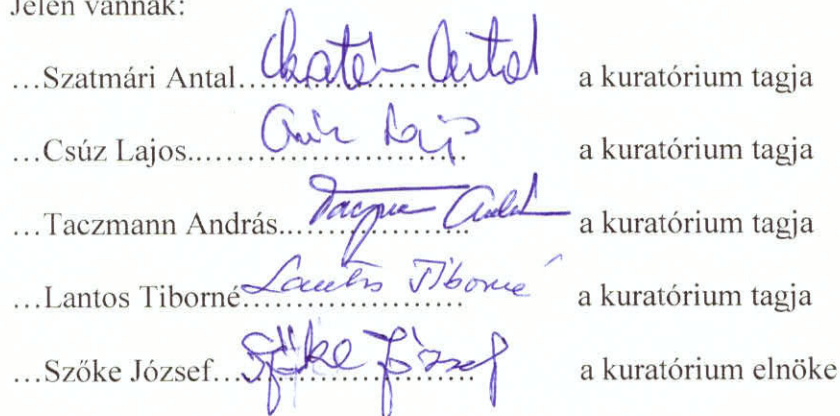 Jelen vannak:
...Szatmári Antal..................... a kuratórium tagja
...Csúz Lajos......................... a kuratórium tagja
...Taczmann András.................. a kuratórium tagja
...Lantos Tiborné Lantos Tiborné a kuratórium tagja
...Szőke József Szőke József a kuratórium elnöke